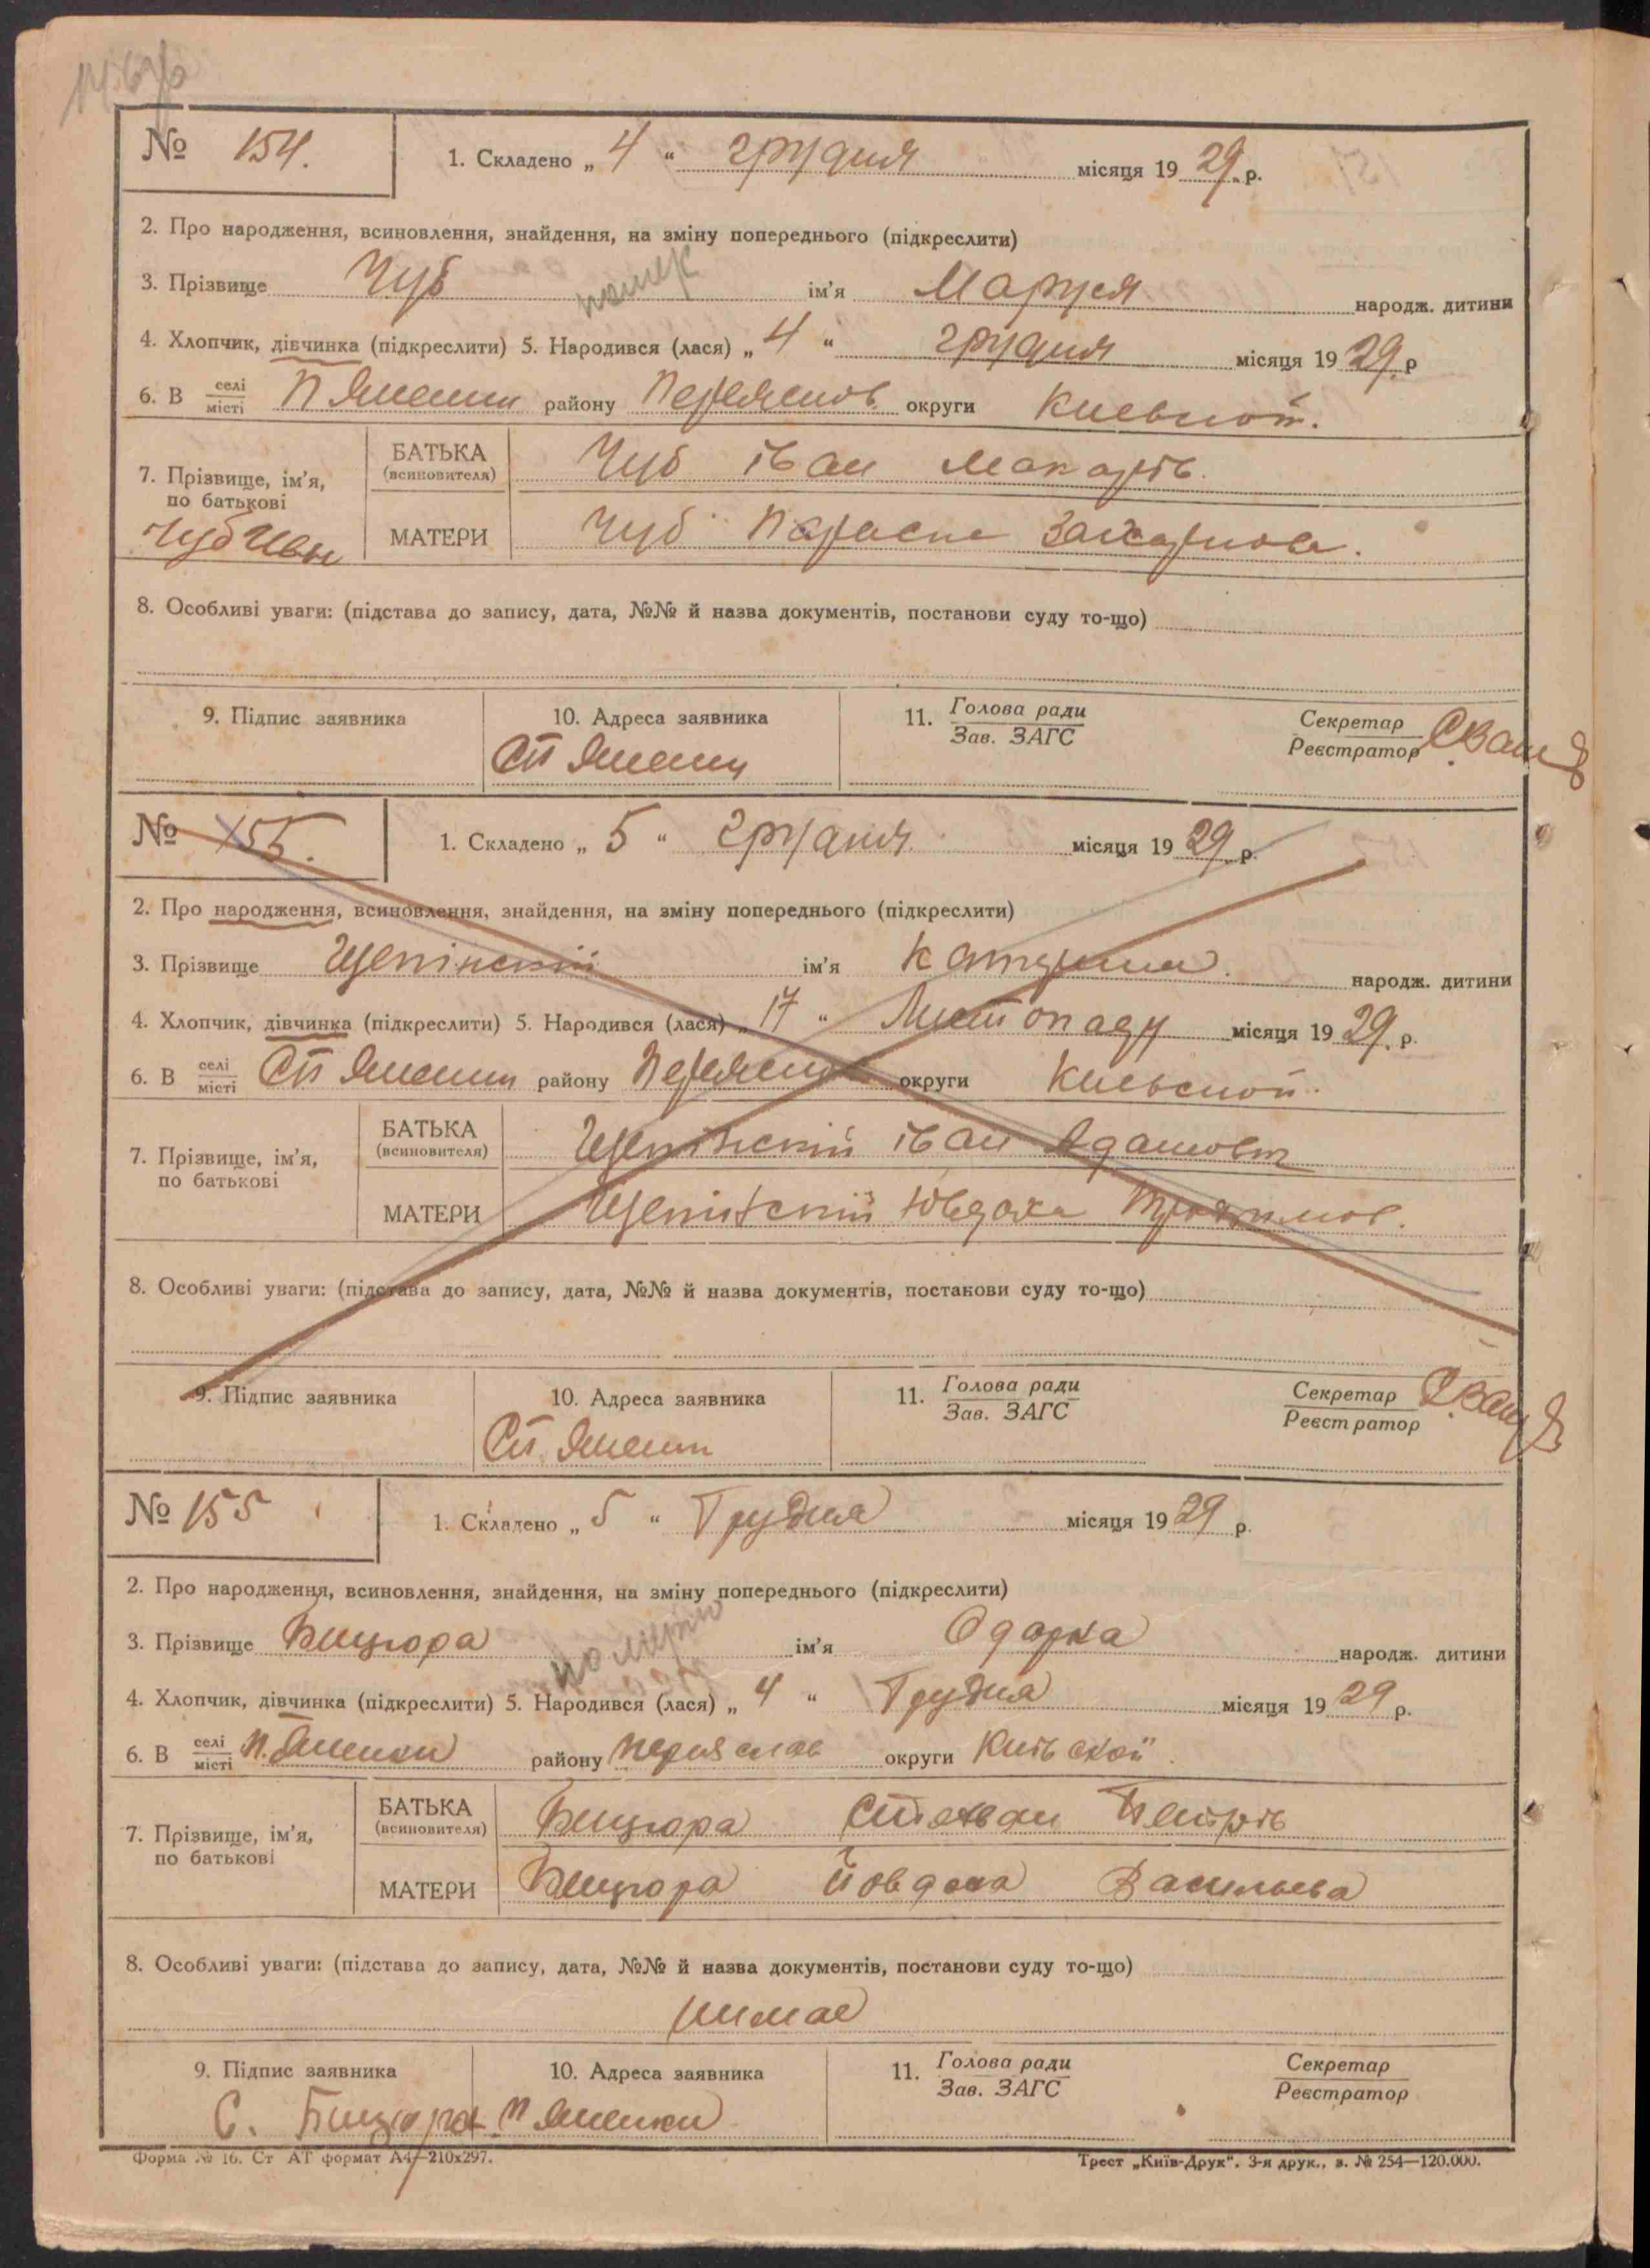 № 154. 1. Складено „ 4 “ грудня місяця 19 29 р.
2. Про народження, всиновлення, знайдення, на зміну попереднього (підкреслити)
3. Прізвище Чуб помер ім'я Маруся народж. дитини
4. Хлопчик, дівчинка (підкреслити) 5. Народився (лася) „ 4 “ грудня місяця 19 29. р
6. В селі місті П Яненки району Переяслов. округи Киевской.
7. Прізвище, ім'я, по батькові
БАТЬКА (всиновителя) Чуб іван Макарів.
МАТЕРИ Чуб Параска Захарнова.
Чуб Иван
8. Особливі уваги: (підстава до запису, дата, №№ й назва документів, постанови суду то-що)
9. Підпис заявника 10. Адреса заявника 11. Голова ради Зав. ЗАГС Секретар Реєстратор
№ 155. 1. Складено „ 5 “ грудня місяця 19 29 р.
2. Про народження, всиновлення, знайдення, на зміну попереднього (підкреслити)
3. Прізвище ім'я Катерина. народж. дитини
4. Хлопчик, дівчинка (підкреслити) 5. Народився (лася) „ 17 “ Листопаду місяця 19 29. р.
6. В селі місті району округи Киевской.
7. Прізвище, ім'я, по батькові
БАТЬКА (всиновителя) іван Адамовт
МАТЕРИ Ювдоха Трохимов.
8. Особливі уваги: (підстава до запису, дата, №№ й назва документів, постанови суду то-що)
9. Підпис заявника 10. Адреса заявника 11. Голова ради Зав. ЗАГС Секретар Реєстратор
№ 155 1. Складено „ 5 “ Грудня місяця 19 29 р.
2. Про народження, всиновлення, знайдення, на зміну попереднього (підкреслити)
3. Прізвище Бицюра ім'я Одарка народж. дитини
4. Хлопчик, дівчинка (підкреслити) 5. Народився (лася) „ 4 “ Грудня місяця 19 29 р.
6. В селі місті п. Яненки району переяслав округи Київской
7. Прізвище, ім'я, по батькові
БАТЬКА (всиновителя) Бицюра Степан Петрів
МАТЕРИ Бицюра Йовдоха Васильева
8. Особливі уваги: (підстава до запису, дата, №№ й назва документів, постанови суду то-що)
нимае
9. Підпис заявника 10. Адреса заявника 11. Голова ради Зав. ЗАГС Секретар Реєстратор
С. Бицюра п Яненки
Форма № 16. Ст АТ формат А4—210х297. Трест „Київ-Друк“. 3-я друк., з. № 254—120.000.